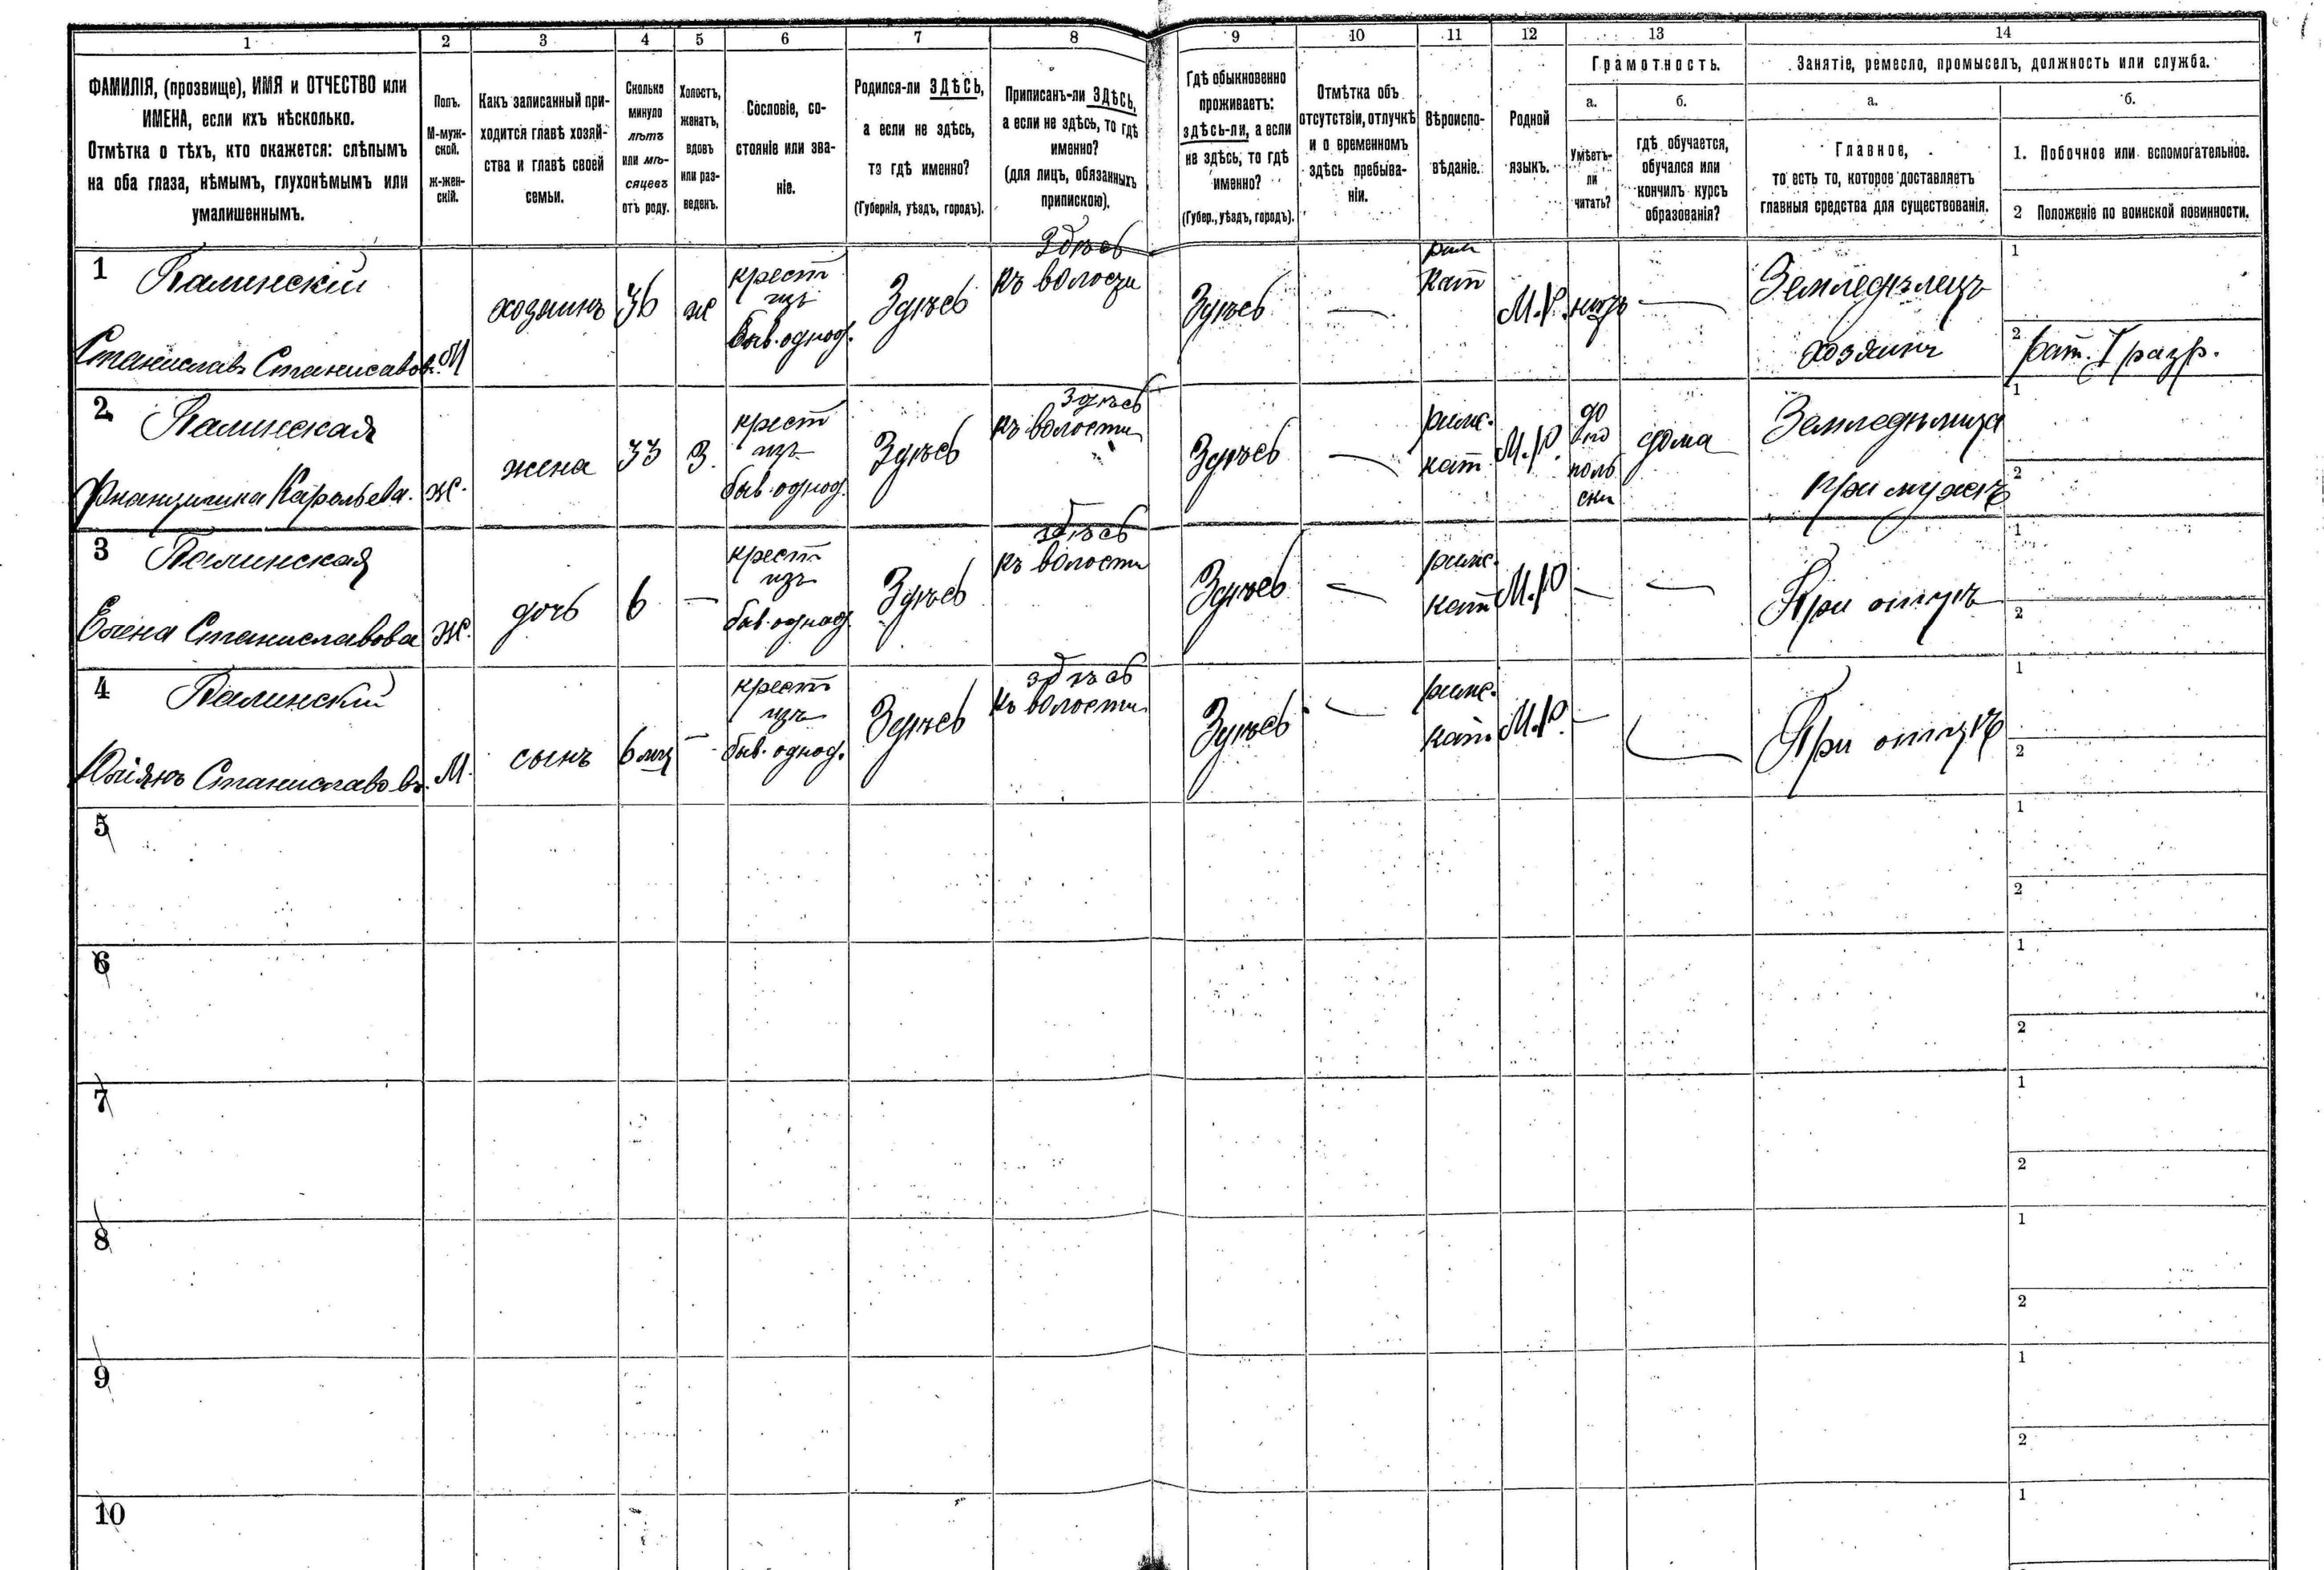 1 2 3 4 5 6 7 8 9 10 11 12 13 14
ФАМИЛІЯ, (прозвище), ИМЯ и ОТЧЕСТВО или
ИМЕНА, если ихъ нѣсколько.
Отмѣтка о тѣхъ, кто окажется: слѣпымъ
на оба глаза, нѣмымъ, глухонѣмымъ или
умалишеннымъ.
Полъ.
М-муж-
ской.
Ж-жен-
скій.
Какъ записанный при-
ходится главѣ хозяй-
ства и главѣ своей
семьи.
Сколько
минуло
лѣтъ
или мѣ-
сяцевъ
отъ роду.
Холостъ,
женатъ,
вдовъ
или раз-
веденъ.
Сословіе, со-
стояніе или зва-
ніе.
Родился-ли ЗДѢСЬ,
а если не здѣсь,
то гдѣ именно?
(Губернія, уѣздъ, городъ).
Приписанъ-ли ЗДѢСЬ,
а если не здѣсь, то гдѣ
именно?
(для лицъ, обязанныхъ
припискою).
Гдѣ обыкновенно
проживаетъ:
здѣсь-ли, а если
не здѣсь, то гдѣ
именно?
(Губер., уѣздъ, городъ).
Отмѣтка объ
отсутствіи, отлучкѣ
и о временномъ
здѣсь пребыва-
ніи.
Вѣроиспо-
вѣданіе.
Родной
языкъ.
Грамотность.
а.
Умѣетъ-
ли
читать?
б.
гдѣ обучается,
обучался или
кончилъ курсъ
образованія?
Занятіе, ремесло, промыселъ, должность или служба.
а.
Главное,
то есть то, которое доставляетъ
главныя средства для существованія.
б.
1. Побочное или вспомогательное.
2 Положеніе по воинской повинности.
1
Станиславъ
М
хозяинъ
36
ж
крест
изъ
быв. однод.
Здѣсь
Здѣсь
къ волости
Здѣсь
—
рим
кат
М.Р.
нѣтъ
—
Земледѣлецъ
хозяинъ
1
2 рат. I разр.
2
Францишка Карольева.
ж.
жена
33
З.
крест
изъ
быв. однод.
Здѣсь
Здѣсь
къ волости
Здѣсь
—
римс.
кат
М.Р.
да
по
поль
ски
дома
при мужѣ
1
2
3
Елена Станиславова
ж.
дочь
6
—
крест
изъ
быв. однод.
Здѣсь
здѣсь
къ волости
Здѣсь
—
римс.
кат
М.Р
—
—
При отцѣ
1
2
4
Станиславовъ.
М.
сынъ
6 мц
—
крест
изъ
быв. однод.
Здѣсь
здѣсь
къ волости
Здѣсь
—
римс.
кат
М.Р.
—
—
При отцѣ
1
2
5
1
2
6
1
2
7
1
2
8
1
2
9
1
2
10
1